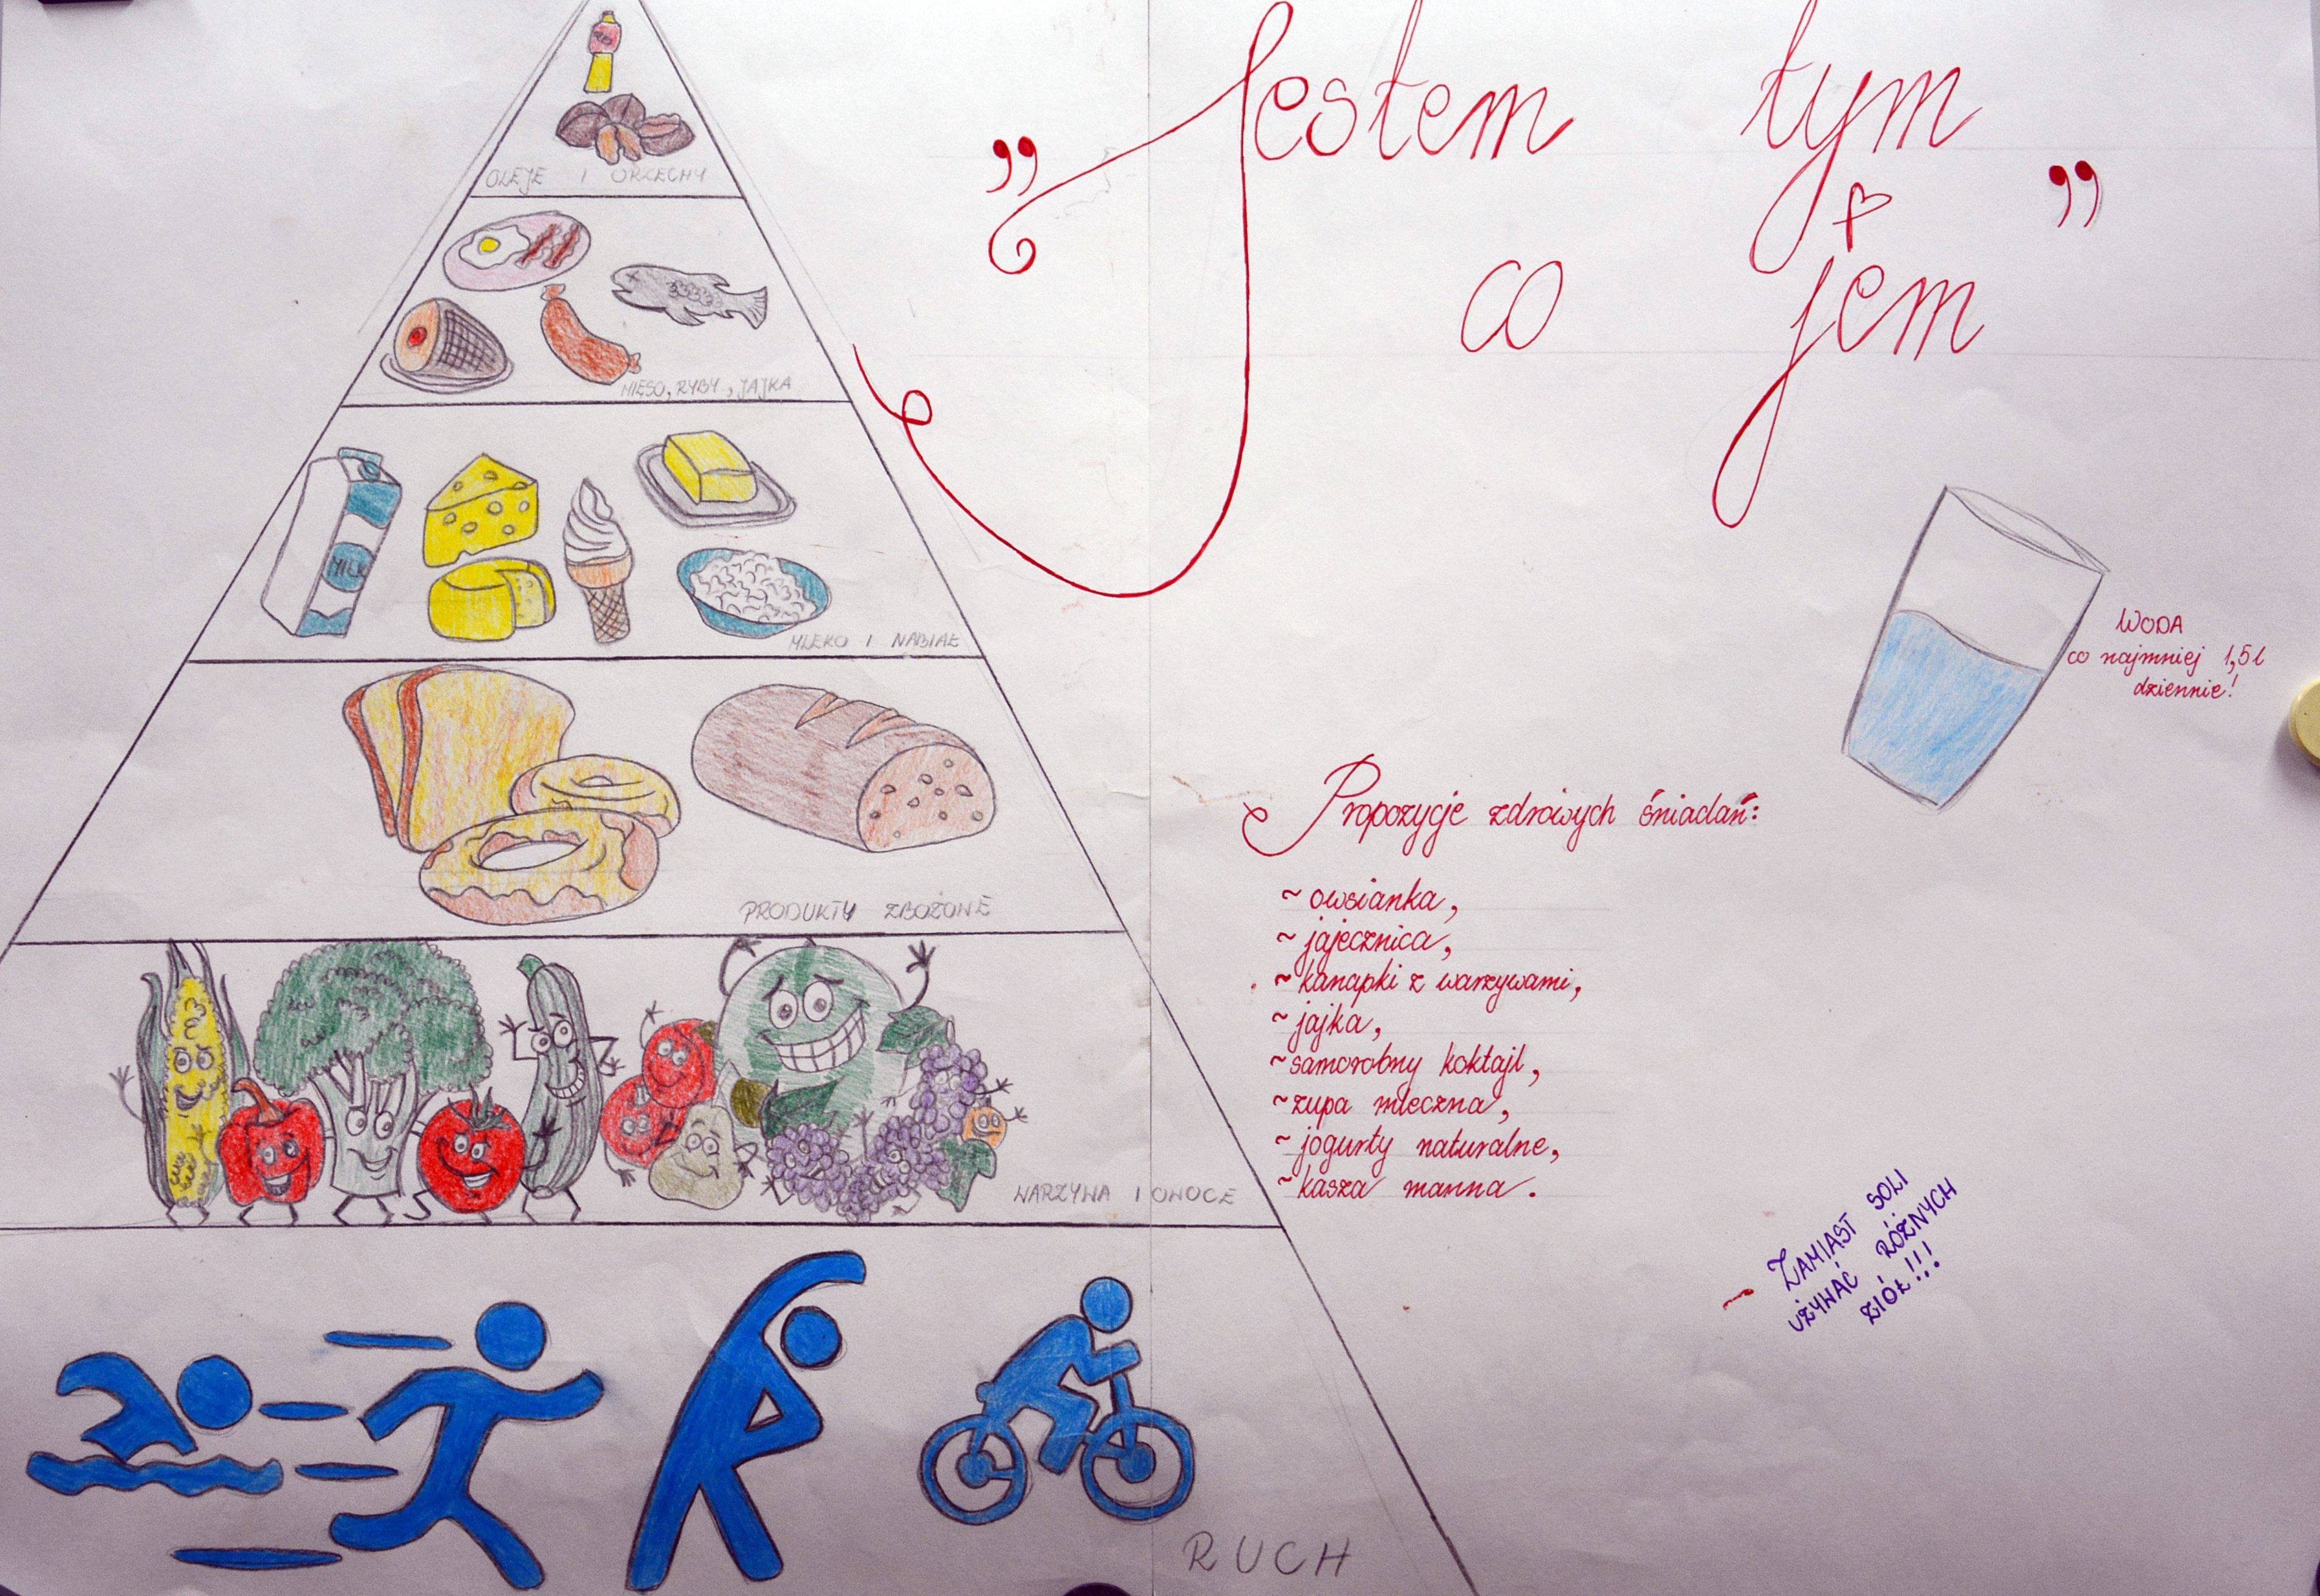 OLEJE I ORZECHY
MIĘSO, RYBY, JAJKA
MILK
MLEKO I NABIAŁ
PRODUKTY ZBOŻOWE
WARZYWA I OWOCE
RUCH
„Jestem tym
co jem”
WODA
co najmniej 1,5l
dziennie!
Propozycje zdrowych śniadań:
~ owsianka,
~ jajecznica,
~ kanapki z warzywami,
~ jajka,
~ samorobny koktajl,
~ zupa mleczna,
~ jogurty naturalne,
~ kasza manna.
- ZAMIAST SOLI
UŻYWAĆ RÓŻNYCH
ZIÓŁ!!!